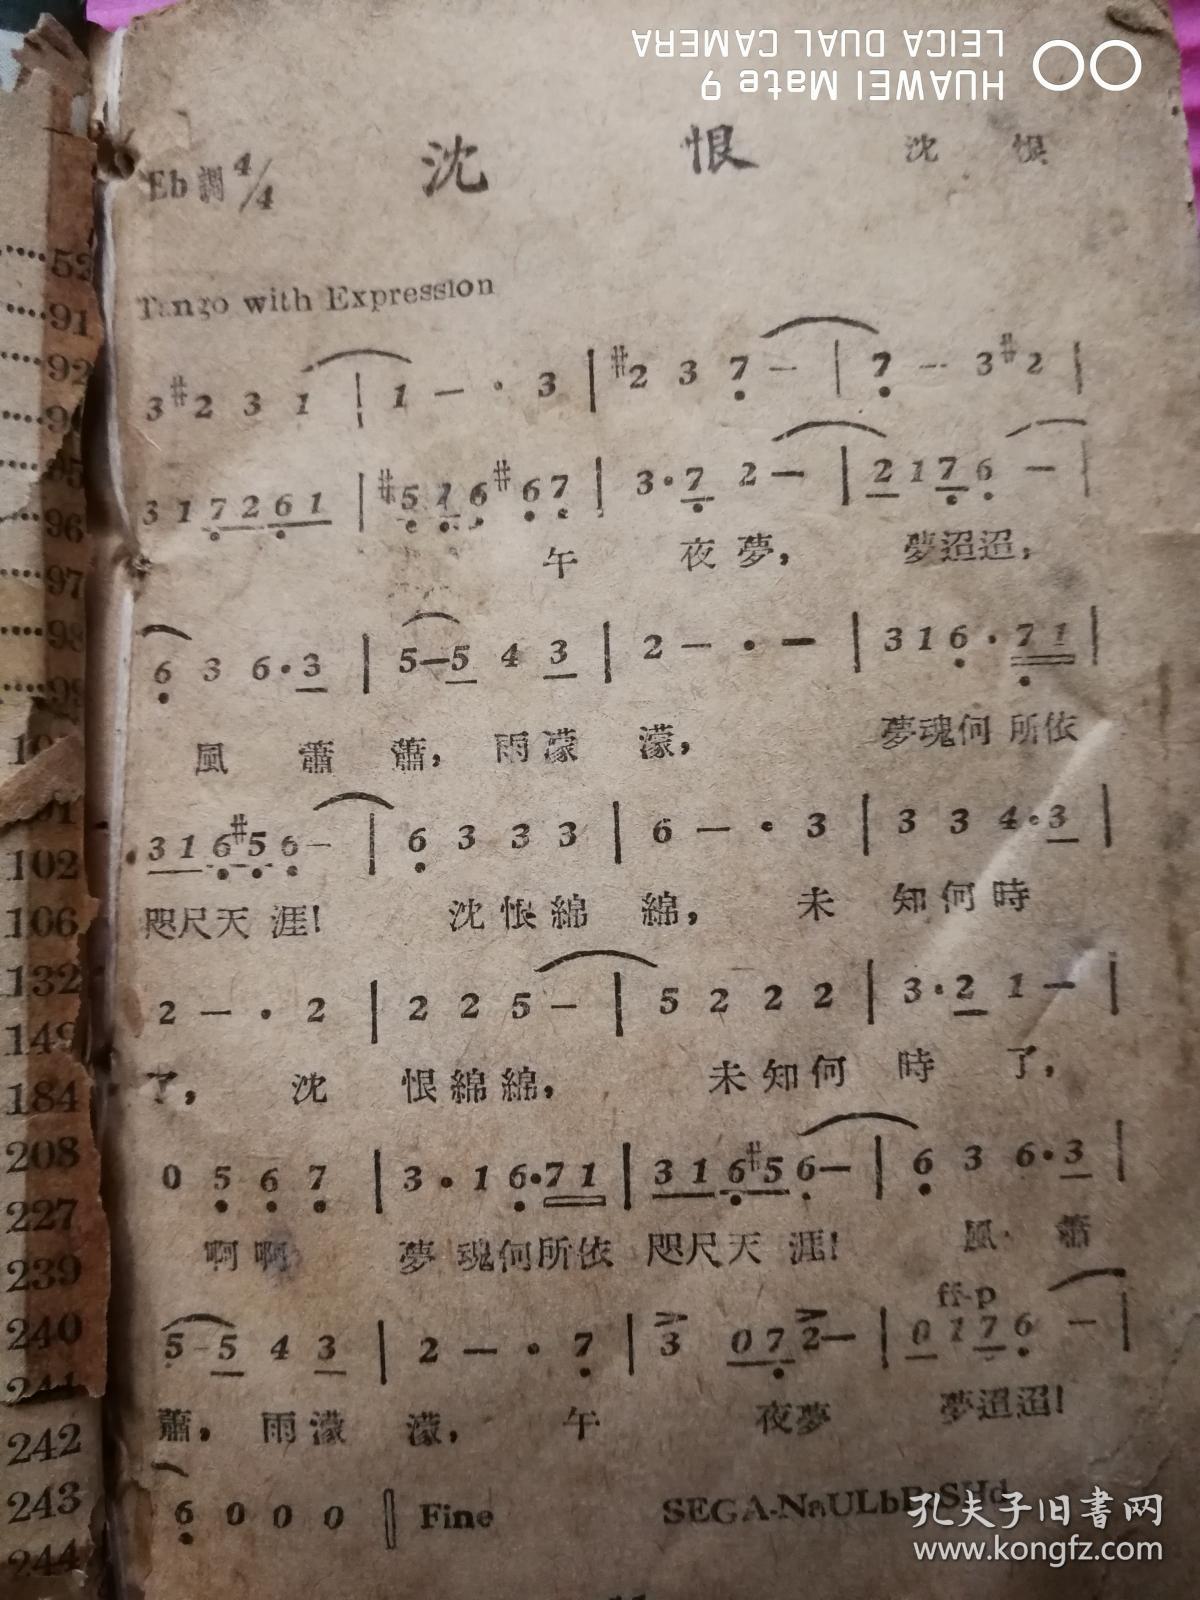 HUAWEI Mate 9
LEICA DUAL CAMERA
Eb調 4/4 沈 恨 沈 恨
Tango with Expression
3 #2 3 1 | 1 — · 3 | #2 3 7 — | 7 — 3 #2 |
3 1 7 2 6 1 | #5 1 6 #6 7 | 3·7 2 — | 2 1 7 6 — |
午 夜 夢, 夢迢迢,
6 3 6·3 | 5—5 4 3 | 2 — · — | 3 1 6·7 1 |
風 蕭 蕭, 雨濛 濛, 夢魂何所依
3 1 6 #5 6 — | 6 3 3 3 | 6 — · 3 | 3 3 4·3 |
咫尺天涯! 沈恨綿 綿, 未 知何時
2 — · 2 | 2 2 5 — | 5 2 2 2 | 3·2 1 — |
了, 沈 恨綿綿, 未知何 時 了,
0 5 6 7 | 3·1 6·7 1 | 3 1 6 #5 6 — | 6 3 6·3 |
啊啊 夢魂何所依 咫尺天 涯! 風 蕭
ff-p
5-5 4 3 | 2 — · 7 | 3 0 7 2 — | 0 1 7 6 — |
蕭, 雨濛 濛, 午 夜夢 夢迢迢!
6 0 0 0 || Fine
52
91
92
96
97
98
102
106
132
149
184
208
227
239
240
242
243
244
孔夫子旧书网
www.kongfz.com